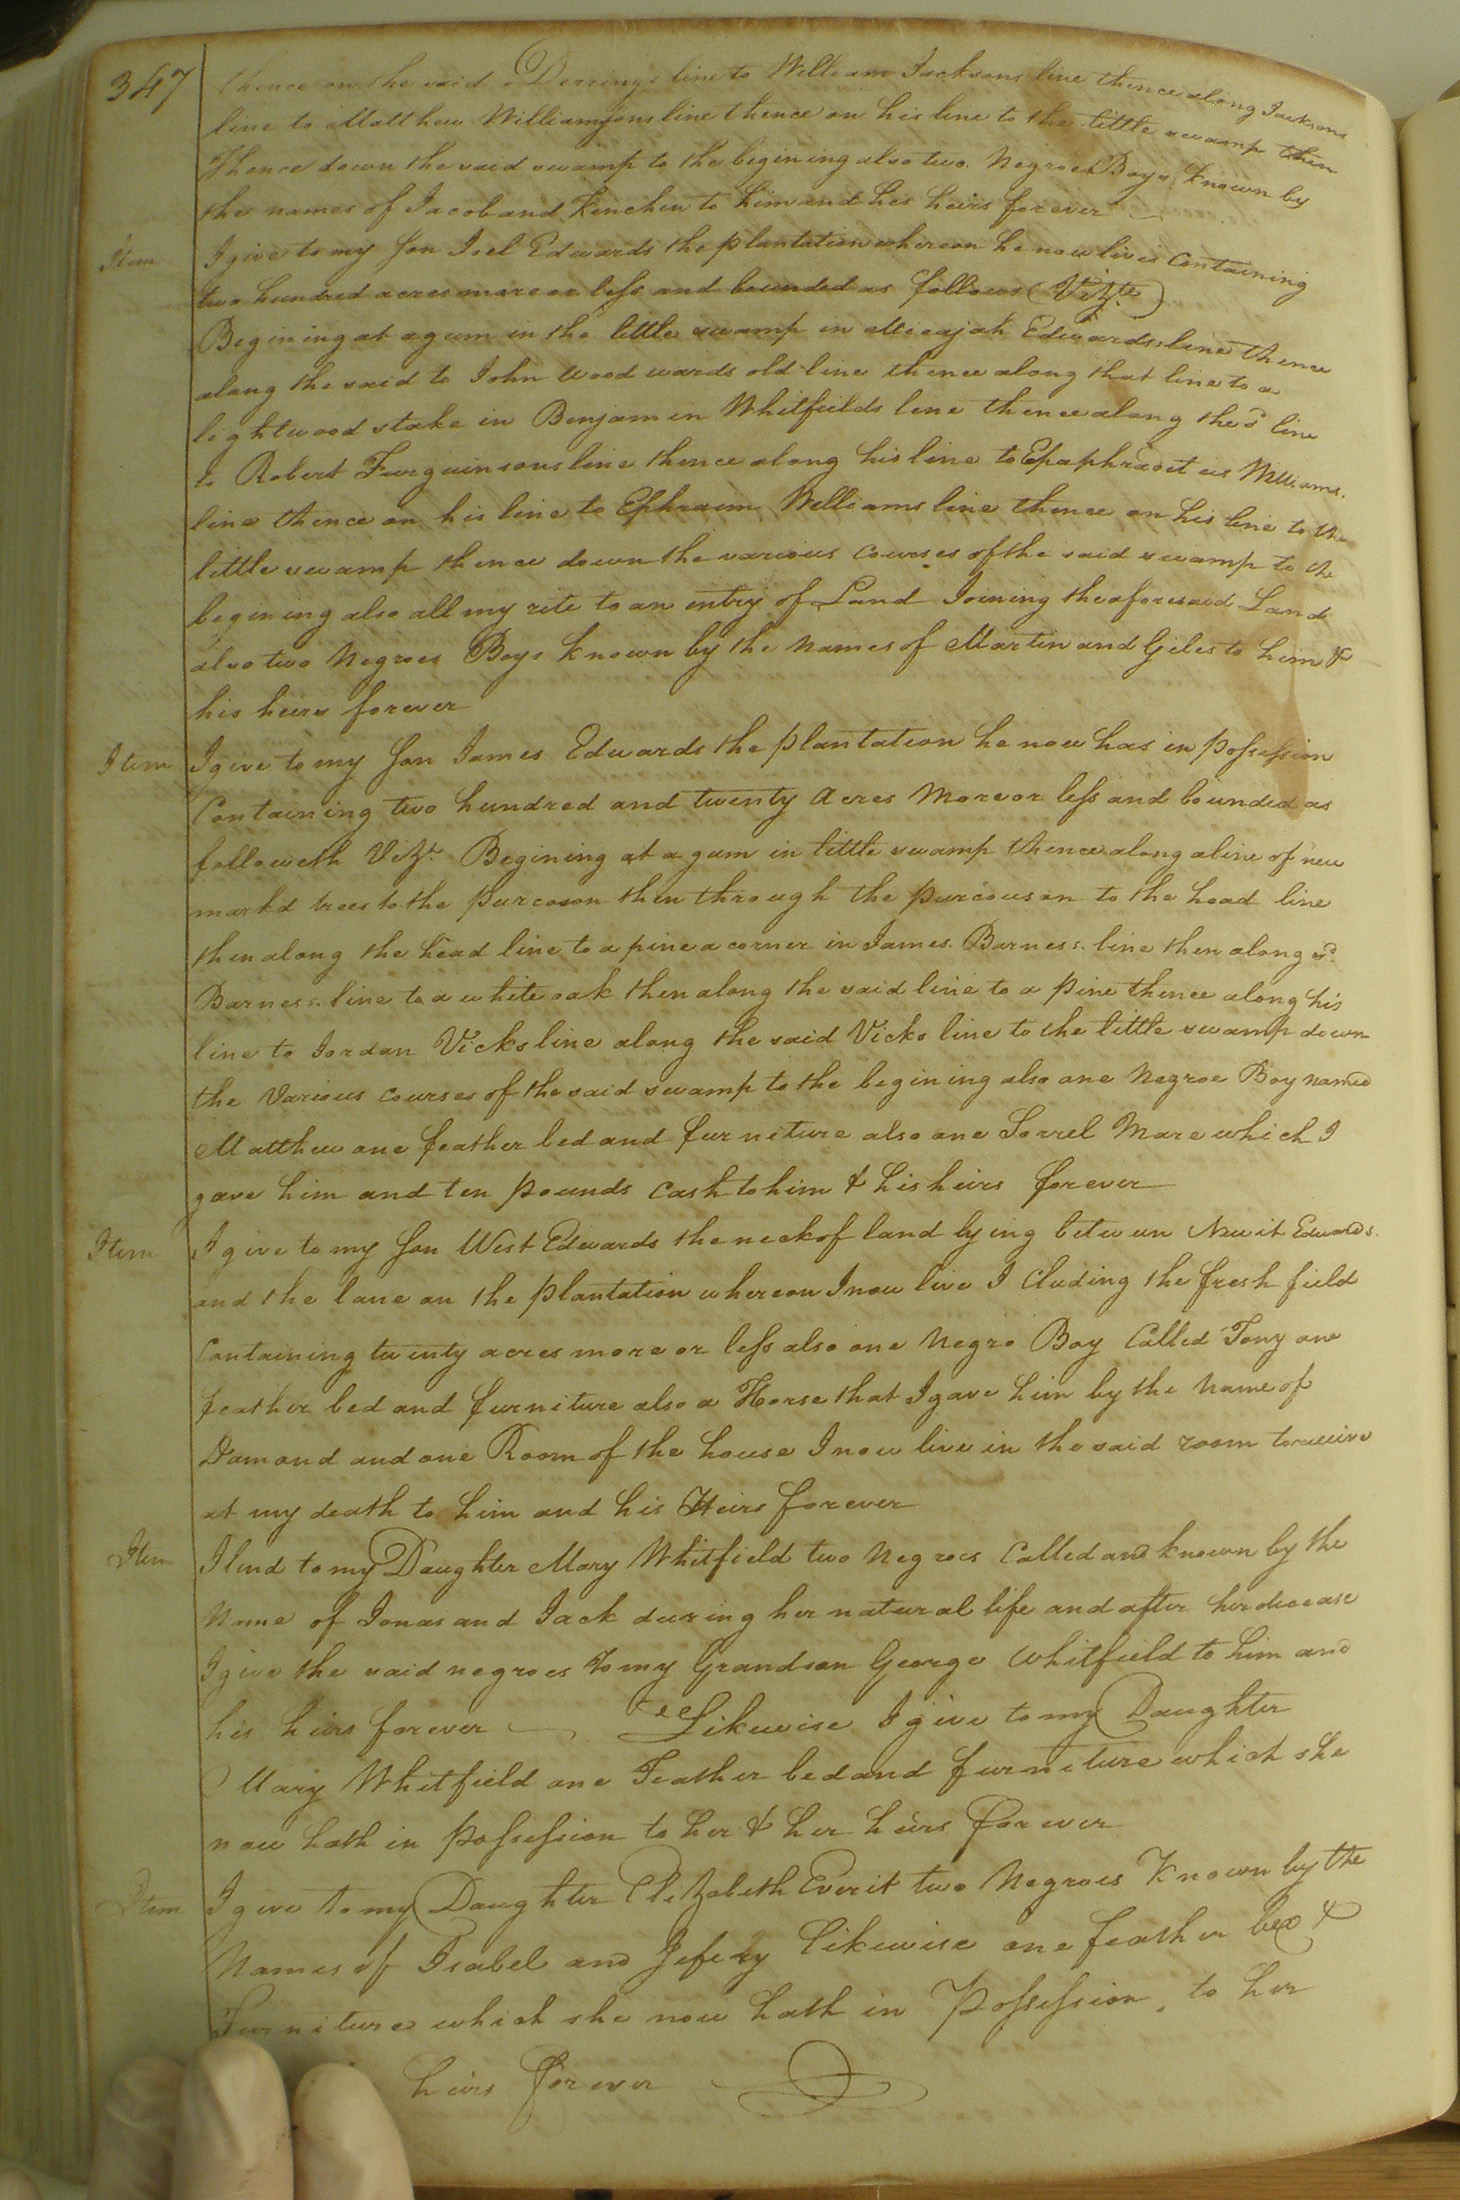 347
thence on the said Derrings line to William Jacksons line thence along Jacksons
line to Matthew Williamsons line thence on his line to the little swamp then
Thence down the said swamp to the begining also two Negroes Boys known by
the names of Jacob and Kinchin to him and his heirs forever
Item I give to my Son Joel Edwards the plantation whereon he now lives Containing
two hundred acres more or less and bounded as follows (Vizte)
Begining at a gum in the little swamp in Micajah Edwards line thence
along the said to John Woodwards old line thence along that line to a
lightwood stake in Benjamin Whitfields line thence along the sd line
to Robert Furguinsons line thence along his line to Epaphraditus Williams
line thence on his line to Ephraim Williams line thence on his line to the
little swamp thence down the various courses of the said swamp to the
begining also all my rite to an entry of Land Joining the aforesaid Land
also two Negroes Boys known by the Names of Martin and Giles to him &
his heirs forever
Item I give to my Son James Edwards the plantation he now has in possession
Containing two hundred and twenty Acres More or less and bounded as
followeth Vizt. Begining at a gum in little swamp thence along a line of new
mark'd trees to the purcoson then through the purcouson to the head line
then along the head line to a pine a corner in James Barness line then along sd.
Barness line to a white oak then along the said line to a pine thence along his
line to Jordan Vicks line along the said Vicks line to the little swamp down
the Various courses of the said swamp to the begining also one Negroe Boy named
Matthew one feather bed and furniture also one Sorrel Mare which I
gave him and ten pounds Cash to him & his heirs forever
Item I give to my Son West Edwards the neck of land lying between Newit Edwards
and the lane on the plantation whereon I now live I Cluding the fresh field
Containing twenty acres more or less also one Negro Boy Called Tony one
feather bed and furniture also a Horse that I gave him by the Name of
Damond and one Room of the house I now live in the said room to receive
at my death to him and his Heirs forever
Item I lend to my Daughter Mary Whitfield two Negroes Called and known by the
Name of Jonas and Jack during her natural life and after her decease
I give the said negroes to my Grandson George Whitfield to him and
his heirs forever Likewise I give to my Daughter
Mary Whitfield one Feather bed and furniture which she
now hath in possession to her & her heirs forever
Item I give to my Daughter Elizabeth Everit two Negroes Known by the
Names of Isabel and Jefery likewise one feather bed &
Furniture which she now hath in Possession to her
heirs forever